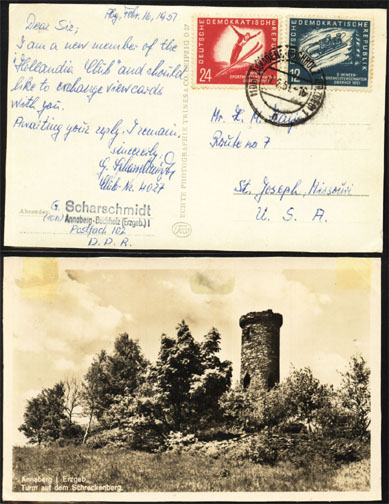 Feb. 16, 1951
Dear Sir;
I am a new member of the
"Hollandia Club" and should
like to exchange view cards
with you.
Awaiting your reply, I remain.
sincerely,
G. Scharschmidt
Club-Nr. 4027
Absender:
G. Scharschmidt
Annaberg-Buchholz (Erzgeb.) 1
Postfach 102
D.D.R.
ECHTE PHOTOGRAPHIE TRINKS & CO. LEIPZIG
DEUTSCHE DEMOKRATISCHE REPUBLIK
24
DEUTSCHE DEMOKRATISCHE REPUBLIK
12
II. WINTER-
SPORTMEISTERSCHAFTEN
OBERHOF 1951
Mr.
Route no 7
St. Joseph, Missouri
U. S. A.
Annaberg i. Erzgeb.
Turm auf dem Schreckenberg.